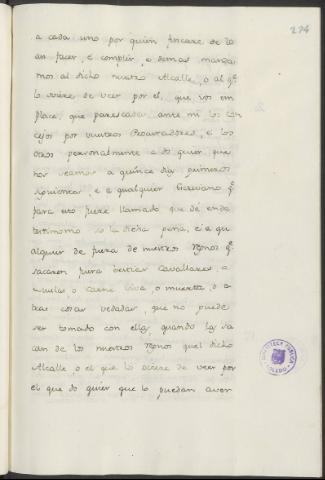 274
a cada uno por quien fincare de lo
asi facer, e complir, e demas manda
mos al dicho nuestro Alcalle, o al q.e
lo oviere de veer por el, que vos em
place, que parescades ante mi los con
cejos por vuestros Procuradores, e los
otros personalmente a do quier que
nos seamos a quince dias primeros
siguientes, e a qualquier Escrivano q.e
para esto fuere llamado que dé ende
testimonio so la dicha pena, e a qu
alquier de fuera de nuestros Regnos q.e
sacaren para bestias Cavallares, o
mulas o carne viva o muerta, o o
tras cosas vedadas, que no puede
ser tomado con ellas, quando las sa
can de los nuestros Regnos quel dicho
Alcalle, o el que lo oviere de veer por
el que do quier que lo puedan aver
BIBLIOTECA PUBLICA
TOLEDO